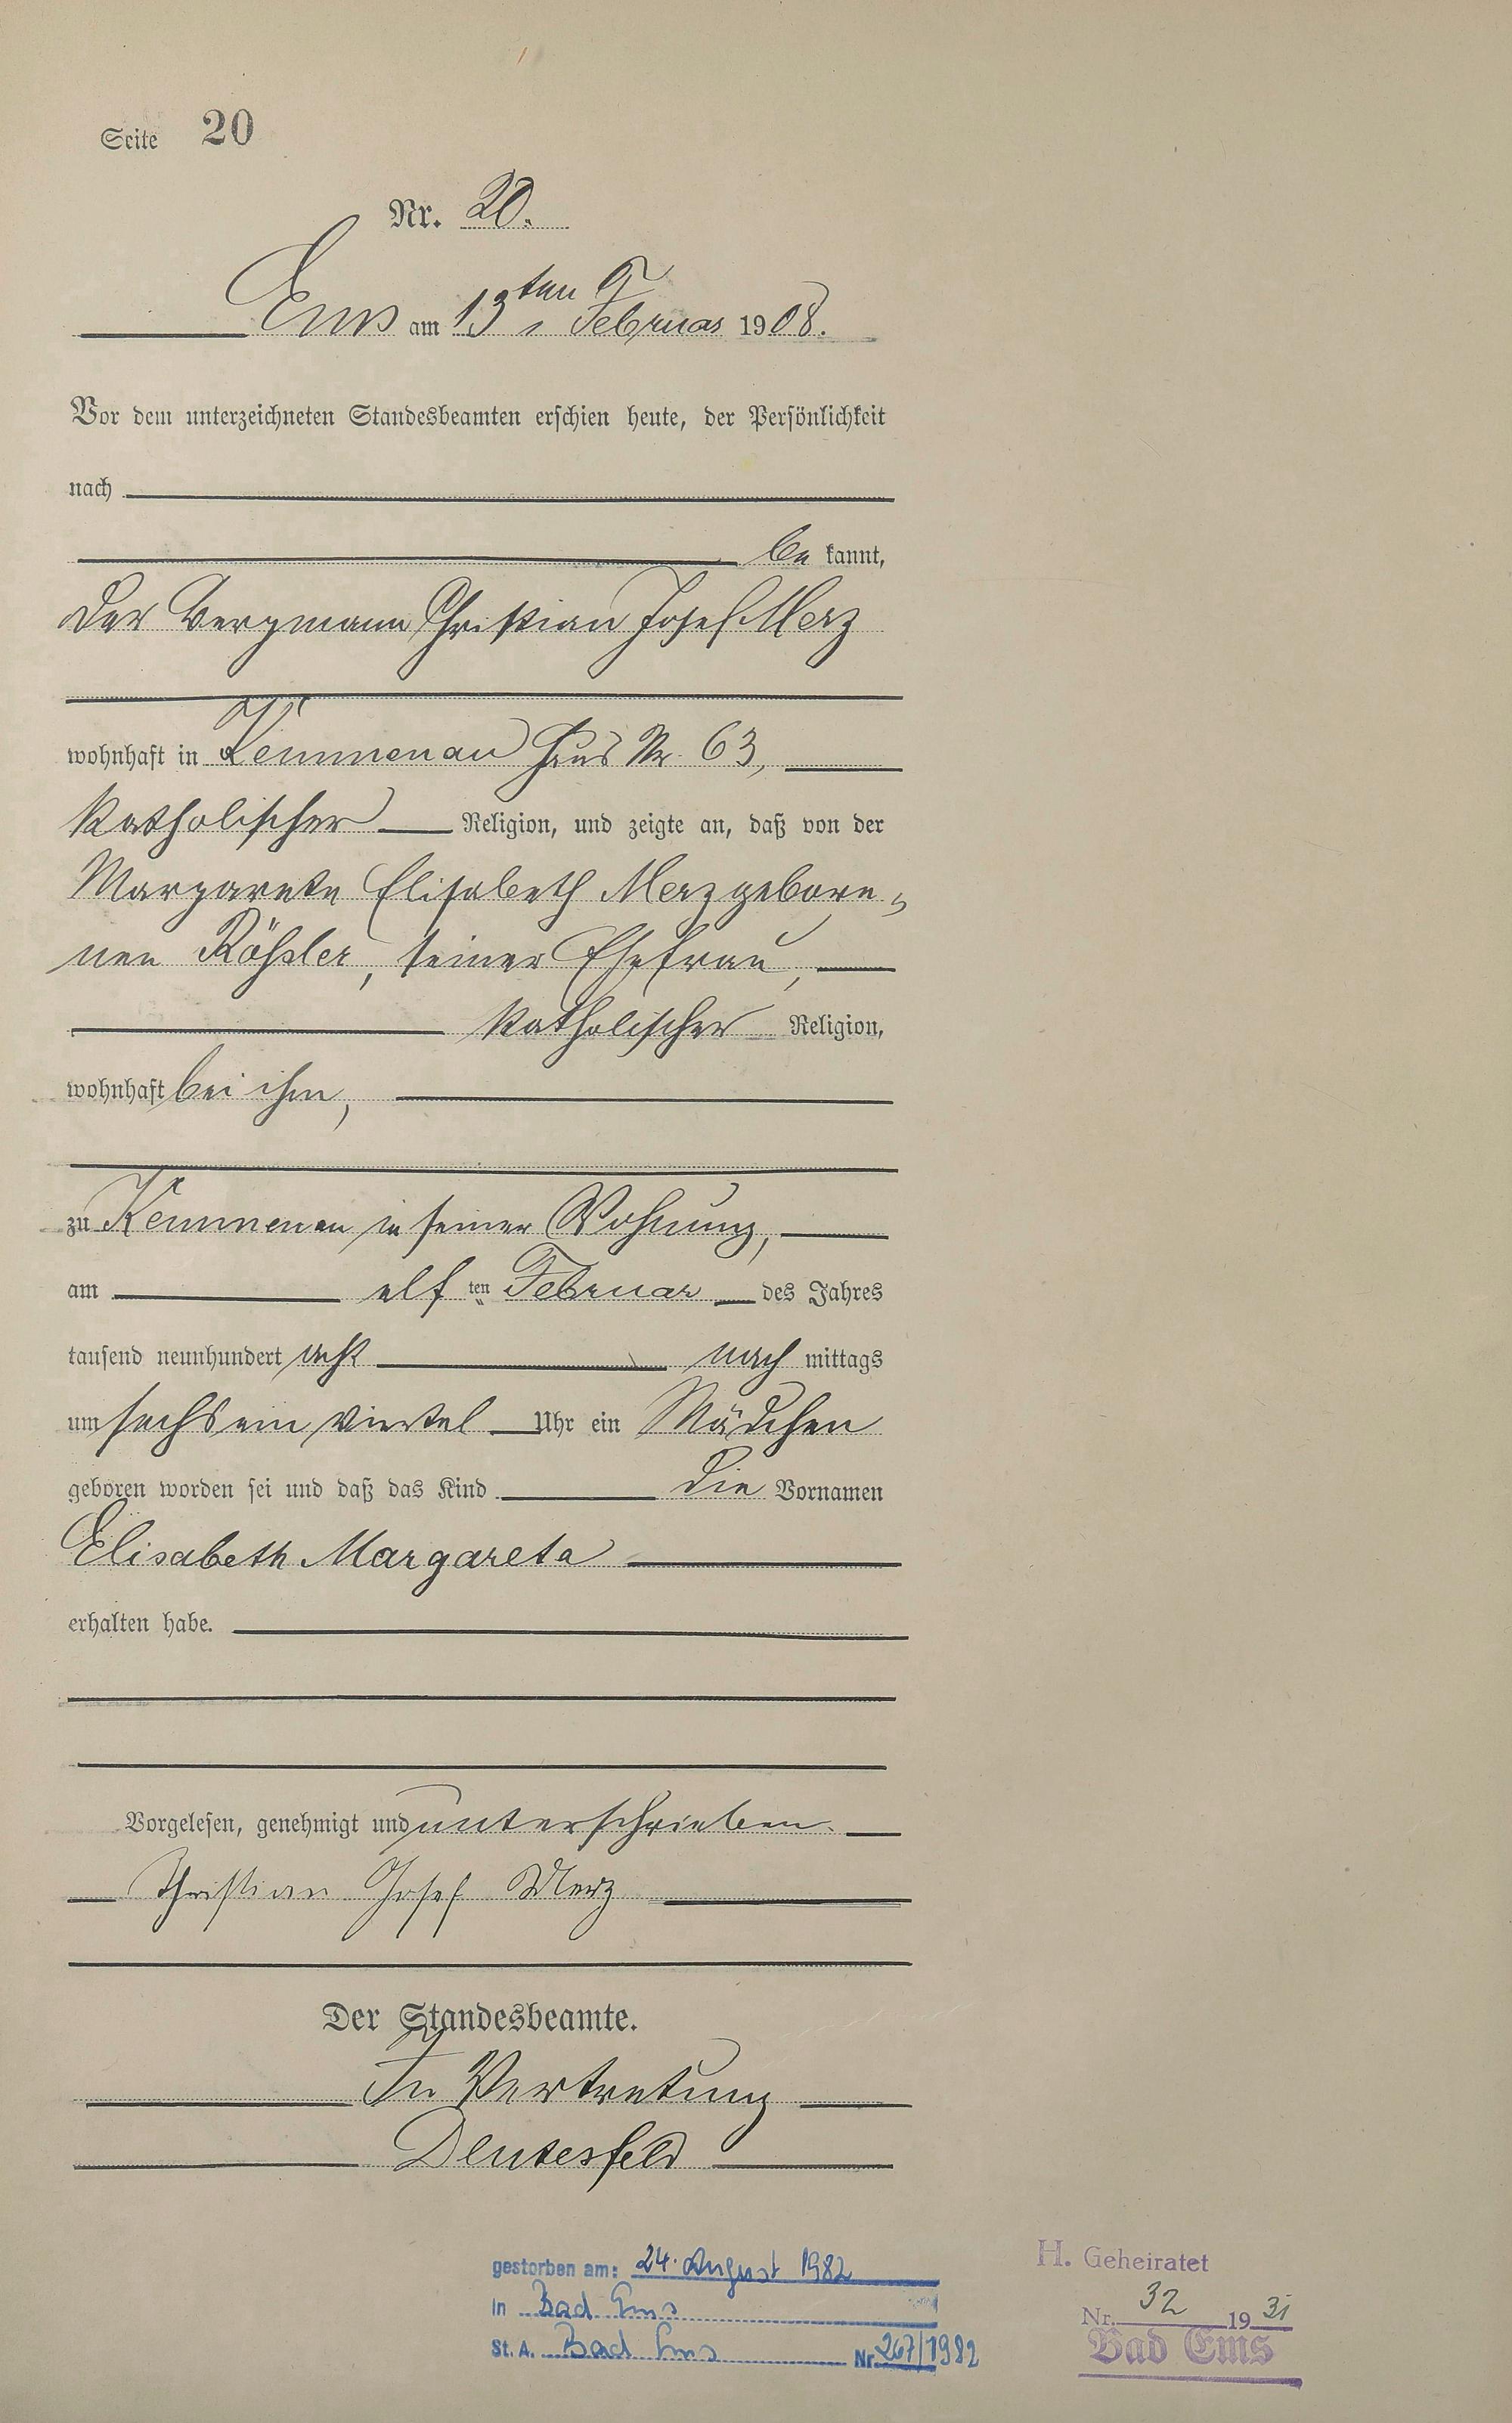 Seite 20
Nr. 20.
Ems am 13ten Februar 1908.
Vor dem unterzeichneten Standesbeamten erschien heute, der Persönlichkeit
nach
be kannt,
der Bergmann Christian Josef Merz
wohnhaft in Kemmenau Haus Nr. 63,
katholischer Religion, und zeigte an, daß von der
Margareta Elisabeth Merz gebore-
nen Rößler, seiner Ehefrau,
katholischer Religion,
wohnhaft bei ihm,
zu Kemmenau in seiner Wohnung,
am elf ten Februar des Jahres
tausend neunhundert acht nach mittags
um sechs ein viertel Uhr ein Mädchen
geboren worden sei und daß das Kind die Vornamen
Elisabeth Margareta
erhalten habe.
Vorgelesen, genehmigt und unterschrieben.
Christian Josef Merz
Der Standesbeamte.
In Vertretung
Deutesfeld
gestorben am: 24. August 1982
in Bad Ems
St. A. Bad Ems Nr 267/1982
H. Geheiratet
Nr. 32 1931
Bad Ems